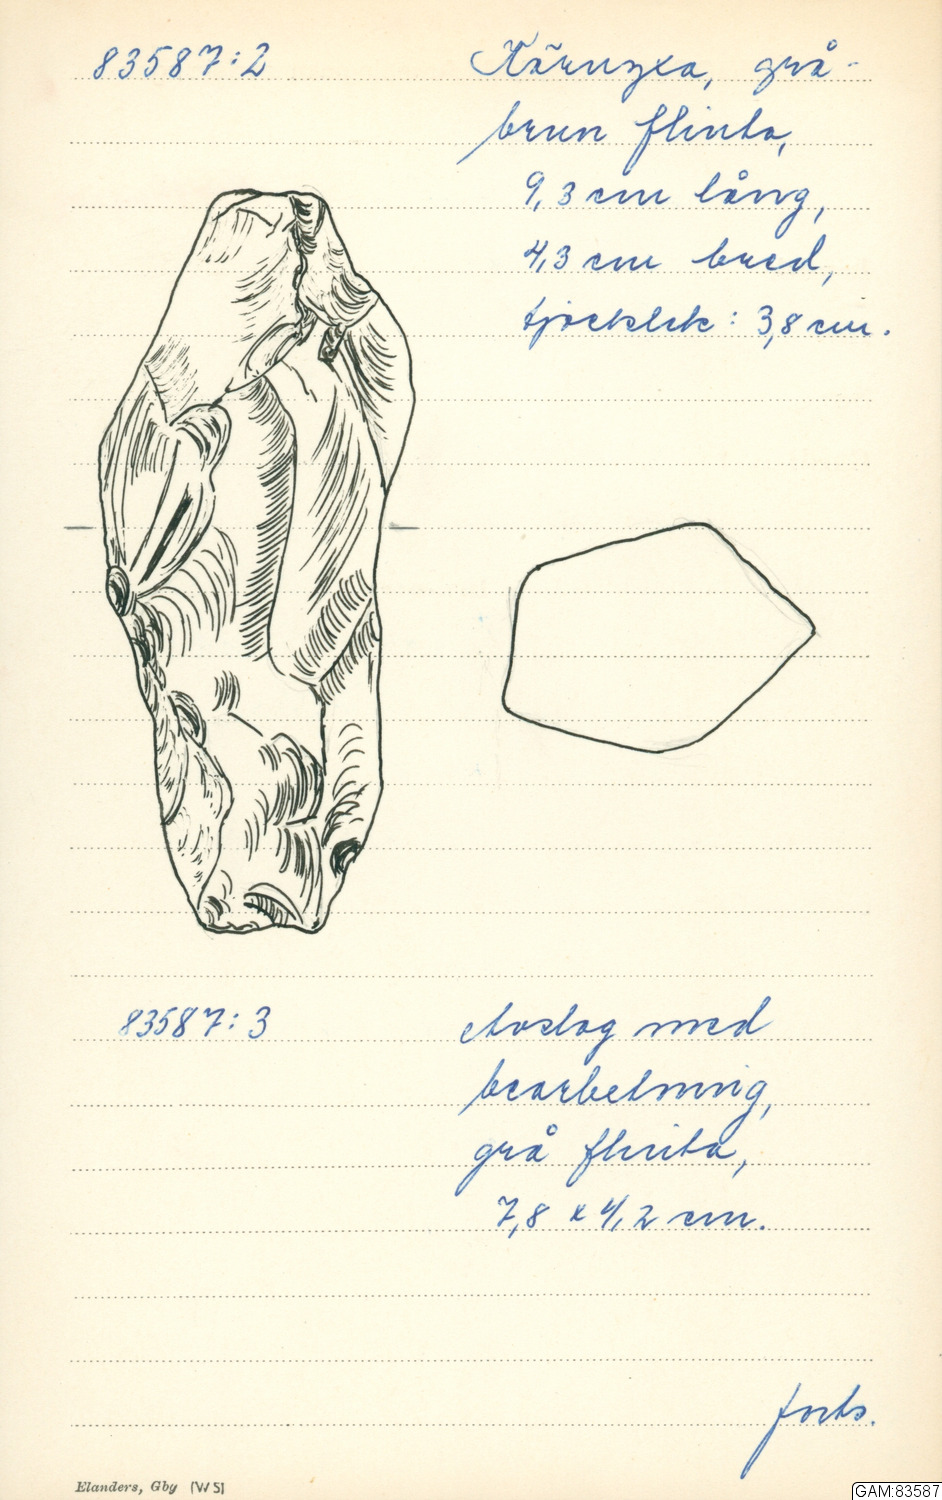 83587:2 Kärnyxa, grå-
brun flinta,
9,3 cm lång,
4,3 cm bred,
tjocklek: 3,8 cm.
83587:3 Avslag med
bearbetning,
grå flinta,
7,8 x 4,2 cm.
forts.
Elanders, Gby [WS]
GAM:83587